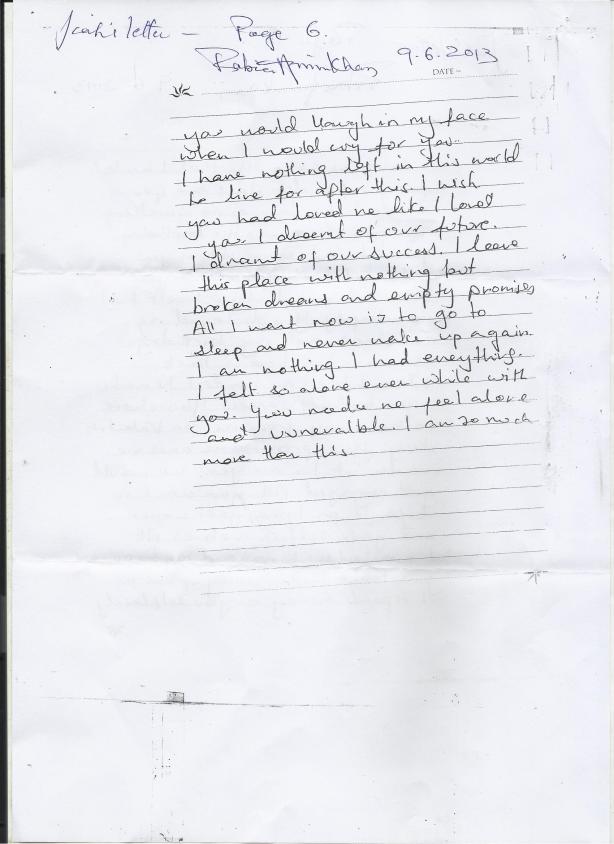 Jiah's letter - Page 6.
Rabia Amin Khan 9.6.2013
DATE -
you would laugh in my face
when I would cry for you..
I have nothing left in this world
to live for after this. I wish
you had loved me like I loved
you. I dreamt of our future.
I dreamt of our success. I leave
this place with nothing but
broken dreams and empty promises
All I want now is to go to
sleep and never wake up again
I am nothing. I had everything.
I felt so alone even while with
you. You made me feel alone
and vunerable. I am so much
more than this.